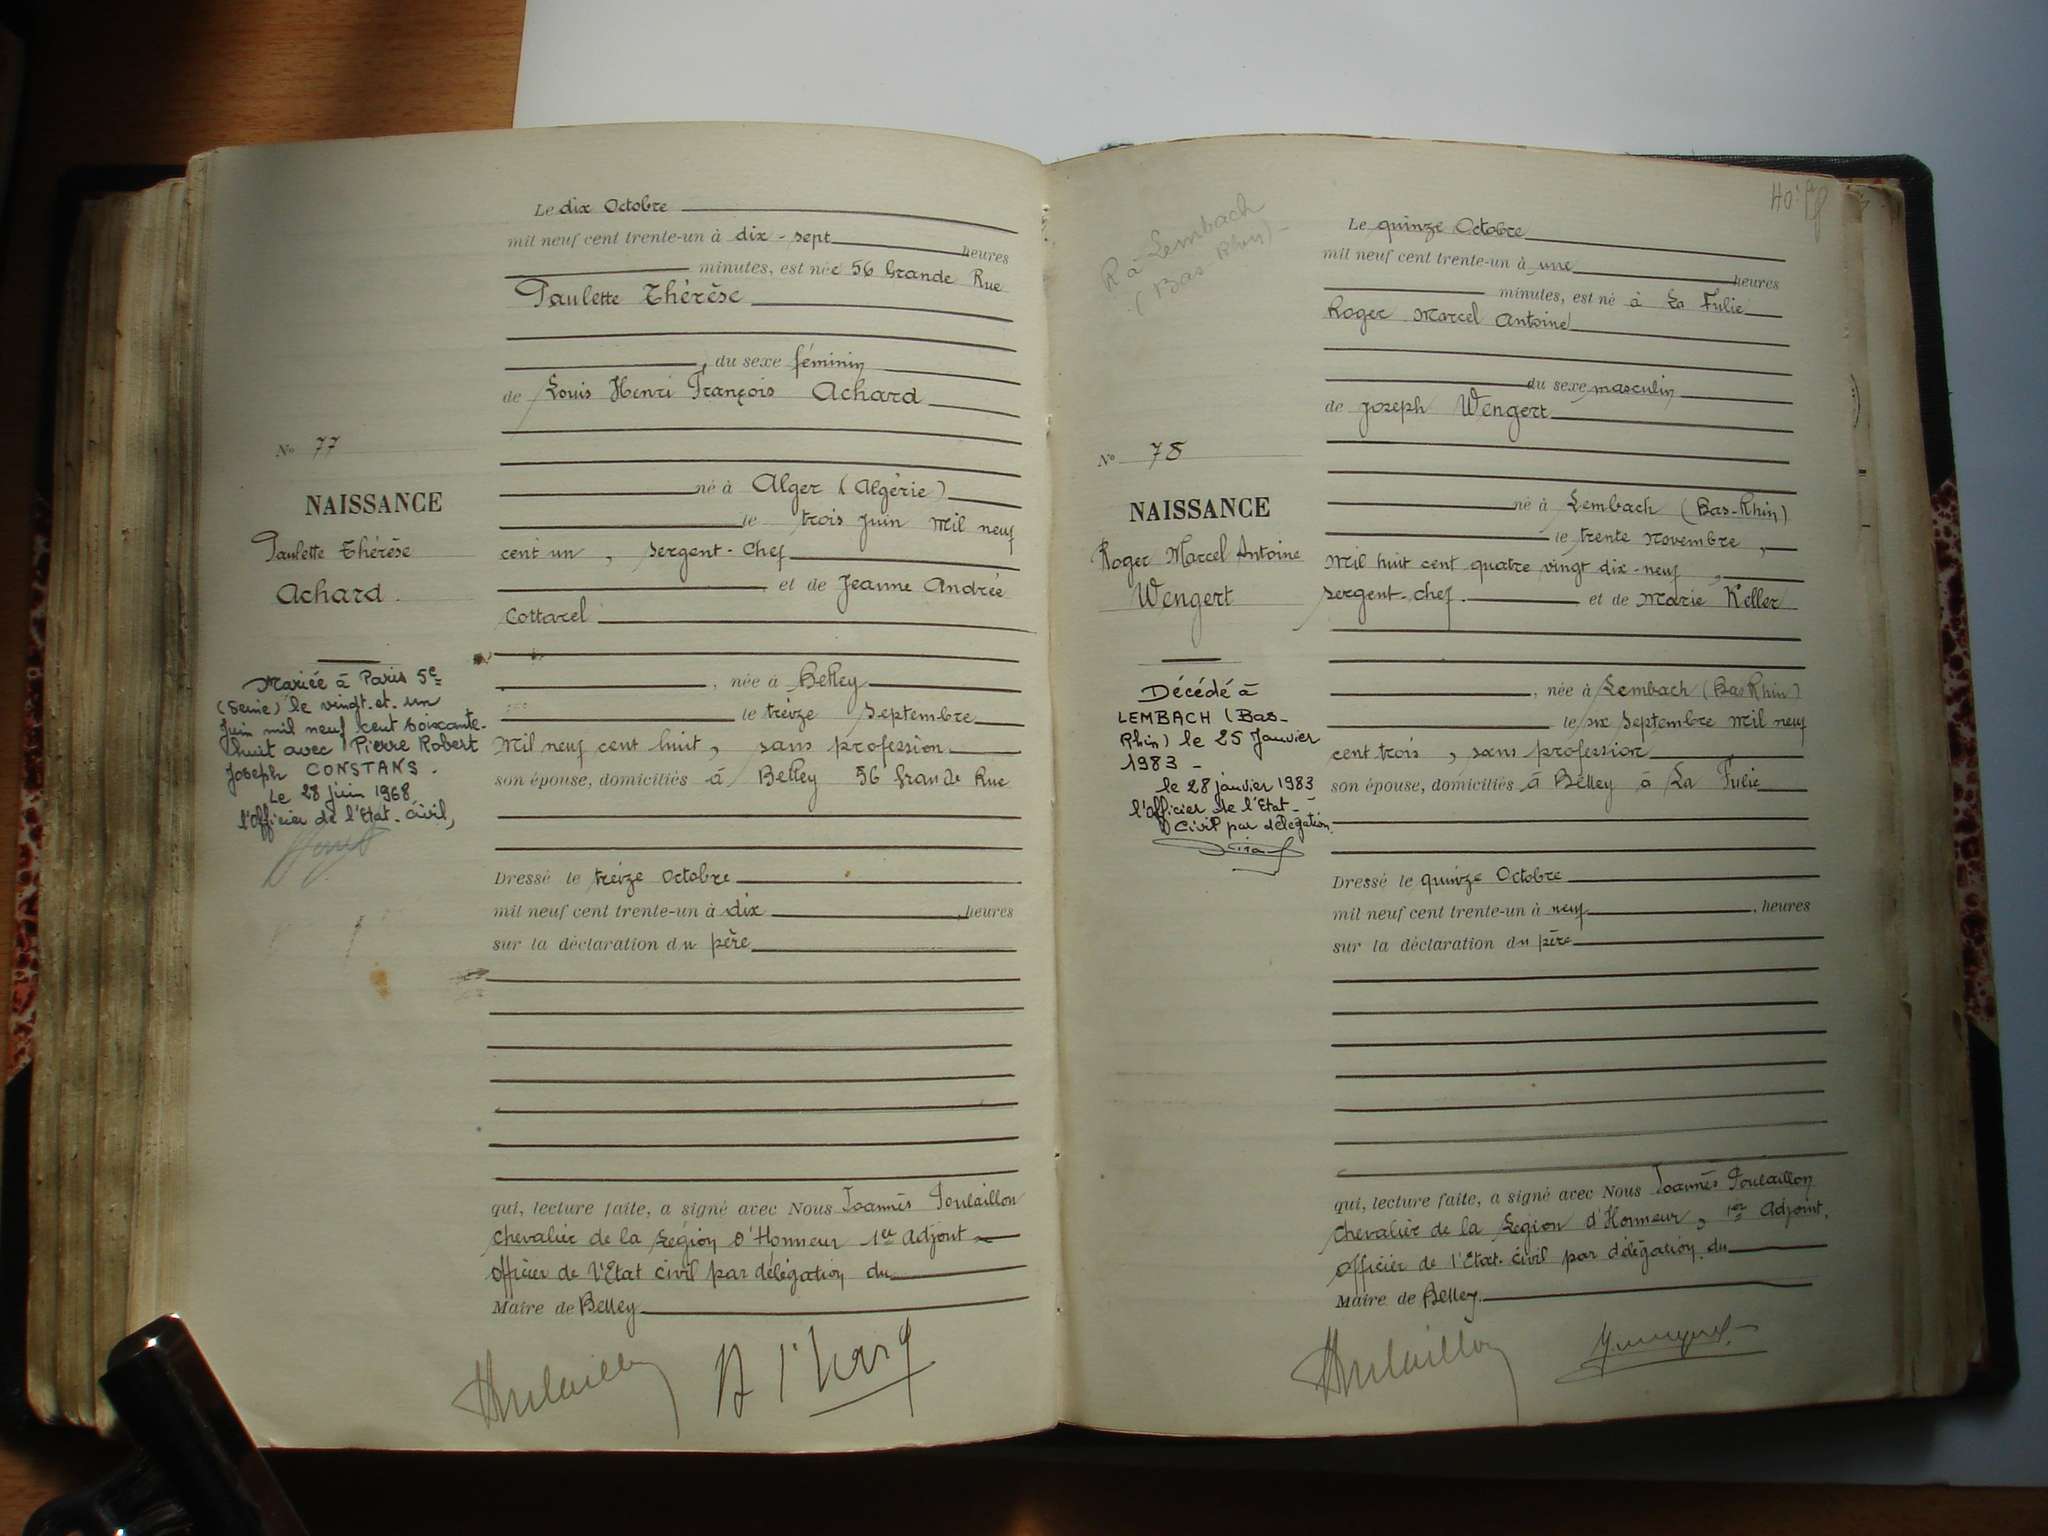 Le dix Octobre
mil neuf cent trente-un à dix-sept heures
minutes, est née 56 Grande Rue
Paulette Thérèse
, du sexe féminin
de Louis Henri François Achard
No 77
NAISSANCE
Paulette Thérèse
Achard.
né à Alger (Algérie)
le trois Juin mil neuf
cent un, sergent-chef
et de Jeanne Andrée
Cottarel
, née à Belley
le treize Septembre
mil neuf cent huit, sans profession
son épouse, domiciliés à Belley 56 Grande Rue
Mariée à Paris 5e
(Seine) le vingt-et-un
Juin mil neuf cent soixante-
huit avec Pierre Robert
Joseph CONSTANS.
Le 28 juin 1968
l'Officier de l'Etat-Civil,
Dressé le treize Octobre
mil neuf cent trente-un à dix, heures
sur la déclaration du père
qui, lecture faite, a signé avec Nous Joannès Poulaillon
Chevalier de la Légion d'Honneur 1er adjoint
Officier de l'Etat Civil par délégation du
Maire de Belley
R à Lembach
(Bas-Rhin)
Le quinze Octobre
mil neuf cent trente-un à une heures
minutes, est né à La Fulie
Roger Marcel Antoine
du sexe masculin
de Joseph Wengert
No 78
NAISSANCE
Roger Marcel Antoine
Wengert
né à Lembach (Bas-Rhin)
le trente novembre,
mil huit cent quatre vingt dix-neuf,
sergent-chef. et de Marie Keller
, née à Lembach (Bas Rhin)
le six Septembre mil neuf
cent trois, sans profession
son épouse, domiciliés à Belley à La Fulie
Décédé à
LEMBACH (Bas-
Rhin) le 25 Janvier
1983 -
le 28 janvier 1983
l'Officier de l'Etat-
Civil par délégation
Dressé le quinze Octobre
mil neuf cent trente-un à neuf, heures
sur la déclaration du père
qui, lecture faite, a signé avec Nous Joannès Poulaillon
Chevalier de la Légion d'Honneur, 1er Adjoint.
Officier de l'Etat-Civil par délégation du
Maire de Belley.